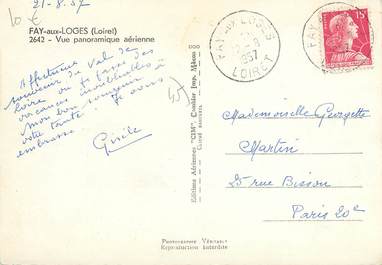 21-8.57
10€
FAY-aux-LOGES (Loiret)
2642 - Vue panoramique aérienne
Affectueux
souvenir de Val de
Loire où je passe des
vacances
mon bon souvenir
votre tante Je vous
embrasse
Gisèle
45)
Editions Aériennes "CIM", Combier Imp. Mâcon
FAY AUX LOGES
1957
LOIRET
FAY
15F
Mademoiselle Georgette
Martin
25 rue Bisson
Paris 20e
Photographie Véritable
Reproduction interdite